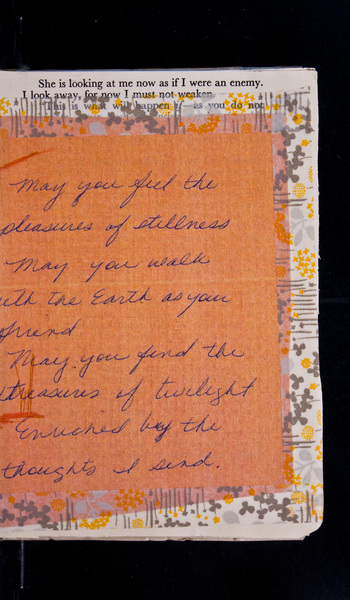 She is looking at me now as if I were an enemy.
I look away, for now I must not weaken.
This is what will happen if as you do not
May you feel the
pleasures of stillness
May you walk
with the Earth as your
friend
May you find the
treasures of twilight
Enriched by the
thoughts I send.